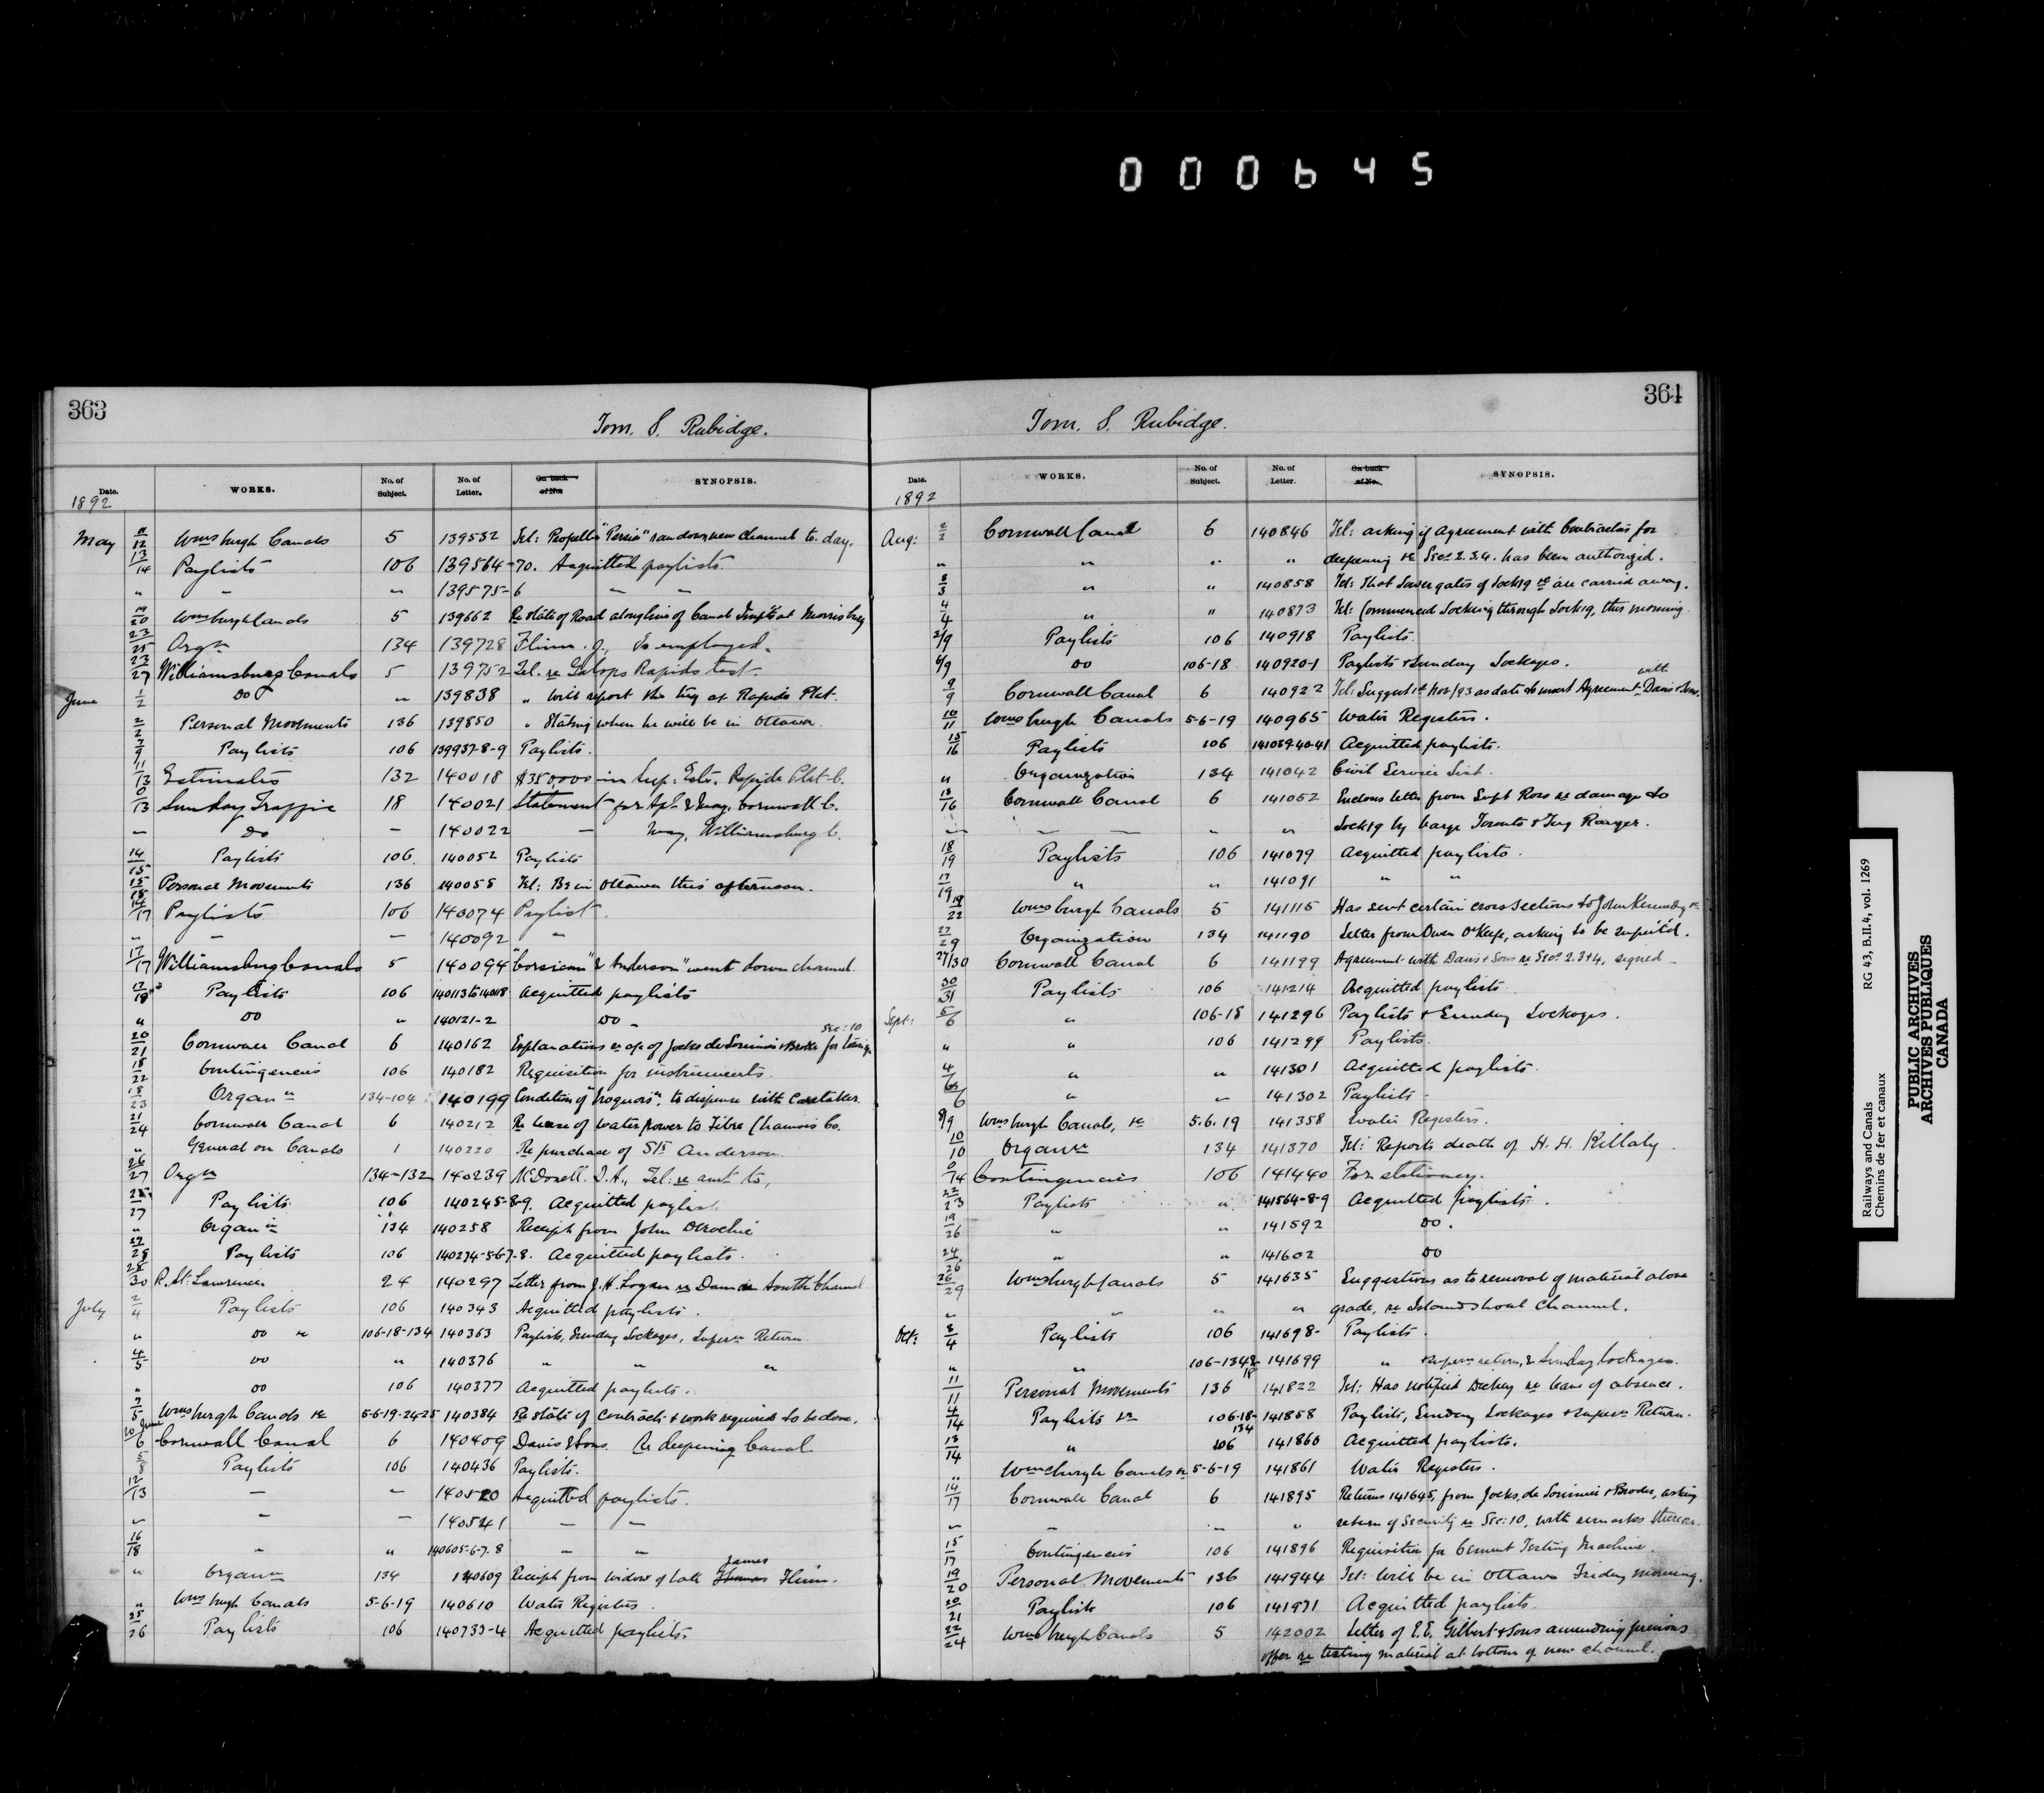 000645
363
Tom. S. Rubidge.
Date. WORKS. No. of Subject. No. of Letter. On back of No. SYNOPSIS.
1892
May 11/12 Wmsburgh Canals 5 139532 Tel: Propeller "Persia" ran down new channel to-day.
13/14 Paylists 106 139564-70. Acquitted paylists.
" " " 139575-6 " "
19/20 Wmsburgh Canals 5 139662 Re state of Road along line of Canal at Morrisburg
23/25 Orgn 134 139728 Flinn. J., employed.
23/27 Williamsburg Canals 5 139752 Tel. re Galops Rapids test.
June 1/2 Do " 139838 " Will report Rapide Plat.
2/2 Personal Movements 136 139850 " Stating when he will be in Ottawa.
7/9 Paylists 106 139937-8-9 Paylists.
11/13 Estimates 132 140018 in Sup: Este. Rapide Plat C.
Sunday Traffic 18 140021 Statement for Apl. & May, Cornwall C.
— Do — 140022 — May, Williamsburg C.
14/15 Paylists 106 140052 Paylists
15/15 Personal Movements 136 140055 Tel: Be in Ottawa this afternoon.
Paylists 106 140074 Paylist.
" — — 140092 "
17/17 Williamsburg Canals 5 140094 "Corsican" & Anderson" went down channel.
Paylists 106 140113 to 140118 Acquitted paylists
" Do " 140121-2 Do -
20/21 Cornwall Canal 6 140162 Explanations re of Jocks de Lorimier & Broder for Sec: 10
18/22 Contingencies 106 140182 Requisition for instruments.
18/23 Organn 134-104 140199 Condition of "Iroquois", to dispense with Caretaker.
21/24 Cornwall Canal 6 140212 Re lease of water power to Fibre Chamois Co.
" General on Canals 1 140220 Re purchase of Str Anderson.
26/27 Orgn 134-132 140239 McDonell. D.A., Tel: re amt to,
25/27 Paylists 106 140245-8-9. Acquitted paylist
" Organn 134 140258 Receipt from John Derochie
27/28 Paylists 106 140274-5-6-7-8. Acquitted paylists.
28/30 R. St: Lawrence 24 140297 Letter from J. H. Logan re Dam in South Channel
July 2/4 Paylists 106 140343 Acquitted paylists.
" Do &c 106-18-134 140363 Paylists, Sunday Lockages, Supern Return.
4/5 Do " 140376 " " "
" Do 106 140377 Acquitted paylists.
7/5 Wmsburgh Canals &c 5-6-19-24-25 140384 Re state of contracts & work required to be done.
20 June/6 Cornwall Canal 6 140409 Davis & Sons. Re deepening Canal
5/8 Paylists 106 140436 Paylists.
12/13 — — 140520 Acquitted paylists.
" — — 140541 — —
16/18 " " 140605-6-7-8 — —
" Organn 134 140609 Receipt from widow of late James Flinn.
" Wmsburgh Canals 5-6-19 140610 Water Registers.
25/26 Paylists 106 140733-4 Acquitted paylists
364
Tom. S. Rubidge.
Date. WORKS. No. of Subject. No. of Letter. On back of No. SYNOPSIS.
1892
Aug: 2/2 Cornwall Canal 6 140846 Tel: asking if Agreement with Contractors for
" " " " deepening re Secs 2.3.4. has been authorized.
3/3 " " 140858 Tel: That lower gates of Lock 19 are carried away.
4/4 " " 140873 Tel: Commenced locking through Lock 19, this morning.
Paylists 106 140918 Paylists.
6/9 Do 106-18 140920-1 Paylists & Sunday Lockages.
9/9 Cornwall Canal 6 140922 Tel: Suggest 1st Nov/93 as date to insert Agreement with Davis & Sons.
10/11 Wmsburgh Canals 5-6-19 140965 Water Registers.
15/16 Paylists 106 141039-40-41 Acquitted paylists.
" Organization 134 141042 Civil Service List.
13/16 Cornwall Canal 6 141052 Endorses letter from Supt Ross re damage to
— — — " " Lock 19 by barge Toronto & Tug Ranger.
18/19 Paylists 106 141079 Acquitted paylists.
17/19 " " 141091 " "
19/22 Wmsburgh Canals 5 141115 Has sent certain cross sections to John Kennedy &c
27/29 Organization 134 141190 Letter from Owen O'Keefe, asking to be
27/30 Cornwall Canal 6 141199 Agreement with Davis & Sons re Secs 2.3+4, signed
30/31 Paylists 106 141214 Acquitted paylists
Sept: 5/6 " 106-18 141296 Paylists & Sunday Lockages.
" " 106 141299 Paylists.
" " 141301 Acquitted paylists.
" " 141302 Paylists -
8/9 Wmsburgh Canals, &c 5.6.19 141358 Water Registers.
10/10 Organn 134 141370 Tel: Reports death of H. H. Killaly.
Contingencies 106 141440 For stationery.
22/23 Paylists " 141564-8-9 Acquitted paylists.
19/26 " " 141592 Do.
24/26 " " 141602 Do
26/29 Wmsburgh Canals 5 141635 Suggestions as to removal of material above
" " " " grade, re Island shoal channel.
Oct: 3/4 Paylists 106 141698- Paylists.
" " 106-134 & 18 141699 " superv return, & Sunday Lockages.
11/11 Personal Movements 136 141822 Tel: Has notified Dickey re leave of absence.
4/14 Paylists &c 106-18-134 141858 Paylists, Sunday Lockages & superv Return.
13/14 " 106 141860 Acquitted paylists.
" Wmsburgh Canals &c 5-6-19 141861 Water Registers.
14/17 Cornwall Canal 6 141895 Returns 141645, from Jocks, de Lorimier & Broder, asking
" — " " return of Security re Sec: 10, with remarks thereon.
15/17 Contingencies 106 141896 Requisition for Cement Testing Machine.
19/20 Personal Movements 136 141944 Tel: Will be in Ottawa Friday morning.
20/21 Paylists 106 141971 Acquitted paylists.
22/24 Wmsburgh Canals 5 142002 Letter of E.E. Gilbert & Sons amending previous
offer re testing material at bottom of new channel.
Railways and Canals RG 43, B.II.4, vol. 1269
Chemins de fer et canaux
PUBLIC ARCHIVES
ARCHIVES PUBLIQUES
CANADA